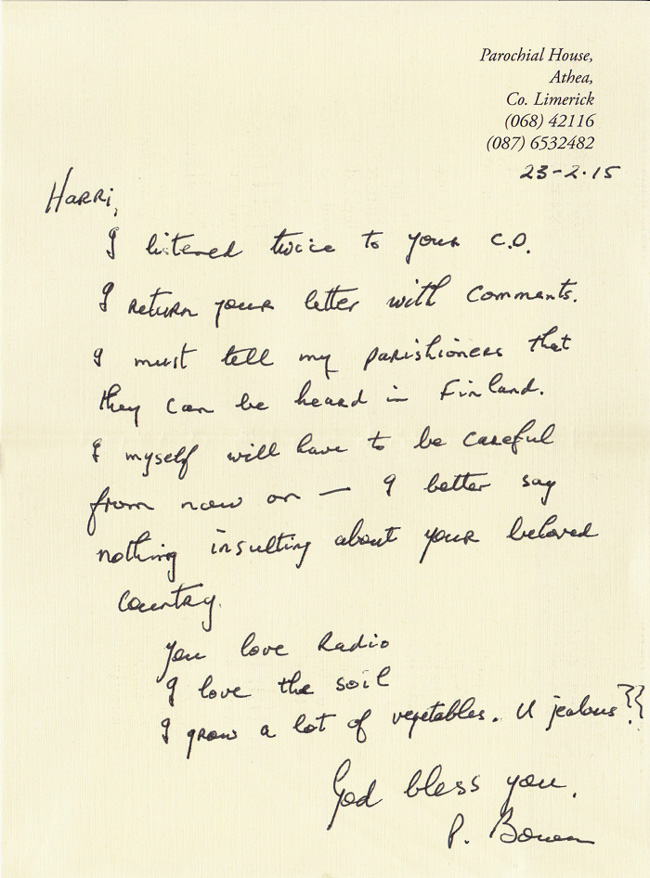 Parochial House,
Athea,
Co. Limerick
(068) 42116
(087) 6532482
23-2.15
Harri,
I listened twice to your C.D.
I return your letter with comments.
I must tell my parishioners that
they can be heard in Finland.
I myself will have to be careful
from now on — I better say
nothing insulting about your beloved
country.
You love Radio
I love the soil
I grow a lot of vegetables. U jealous??
God bless you.
P. Bowen